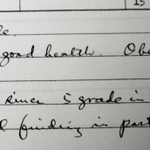 15
e.
good health. Obe
since 5 grade in
l finding in past